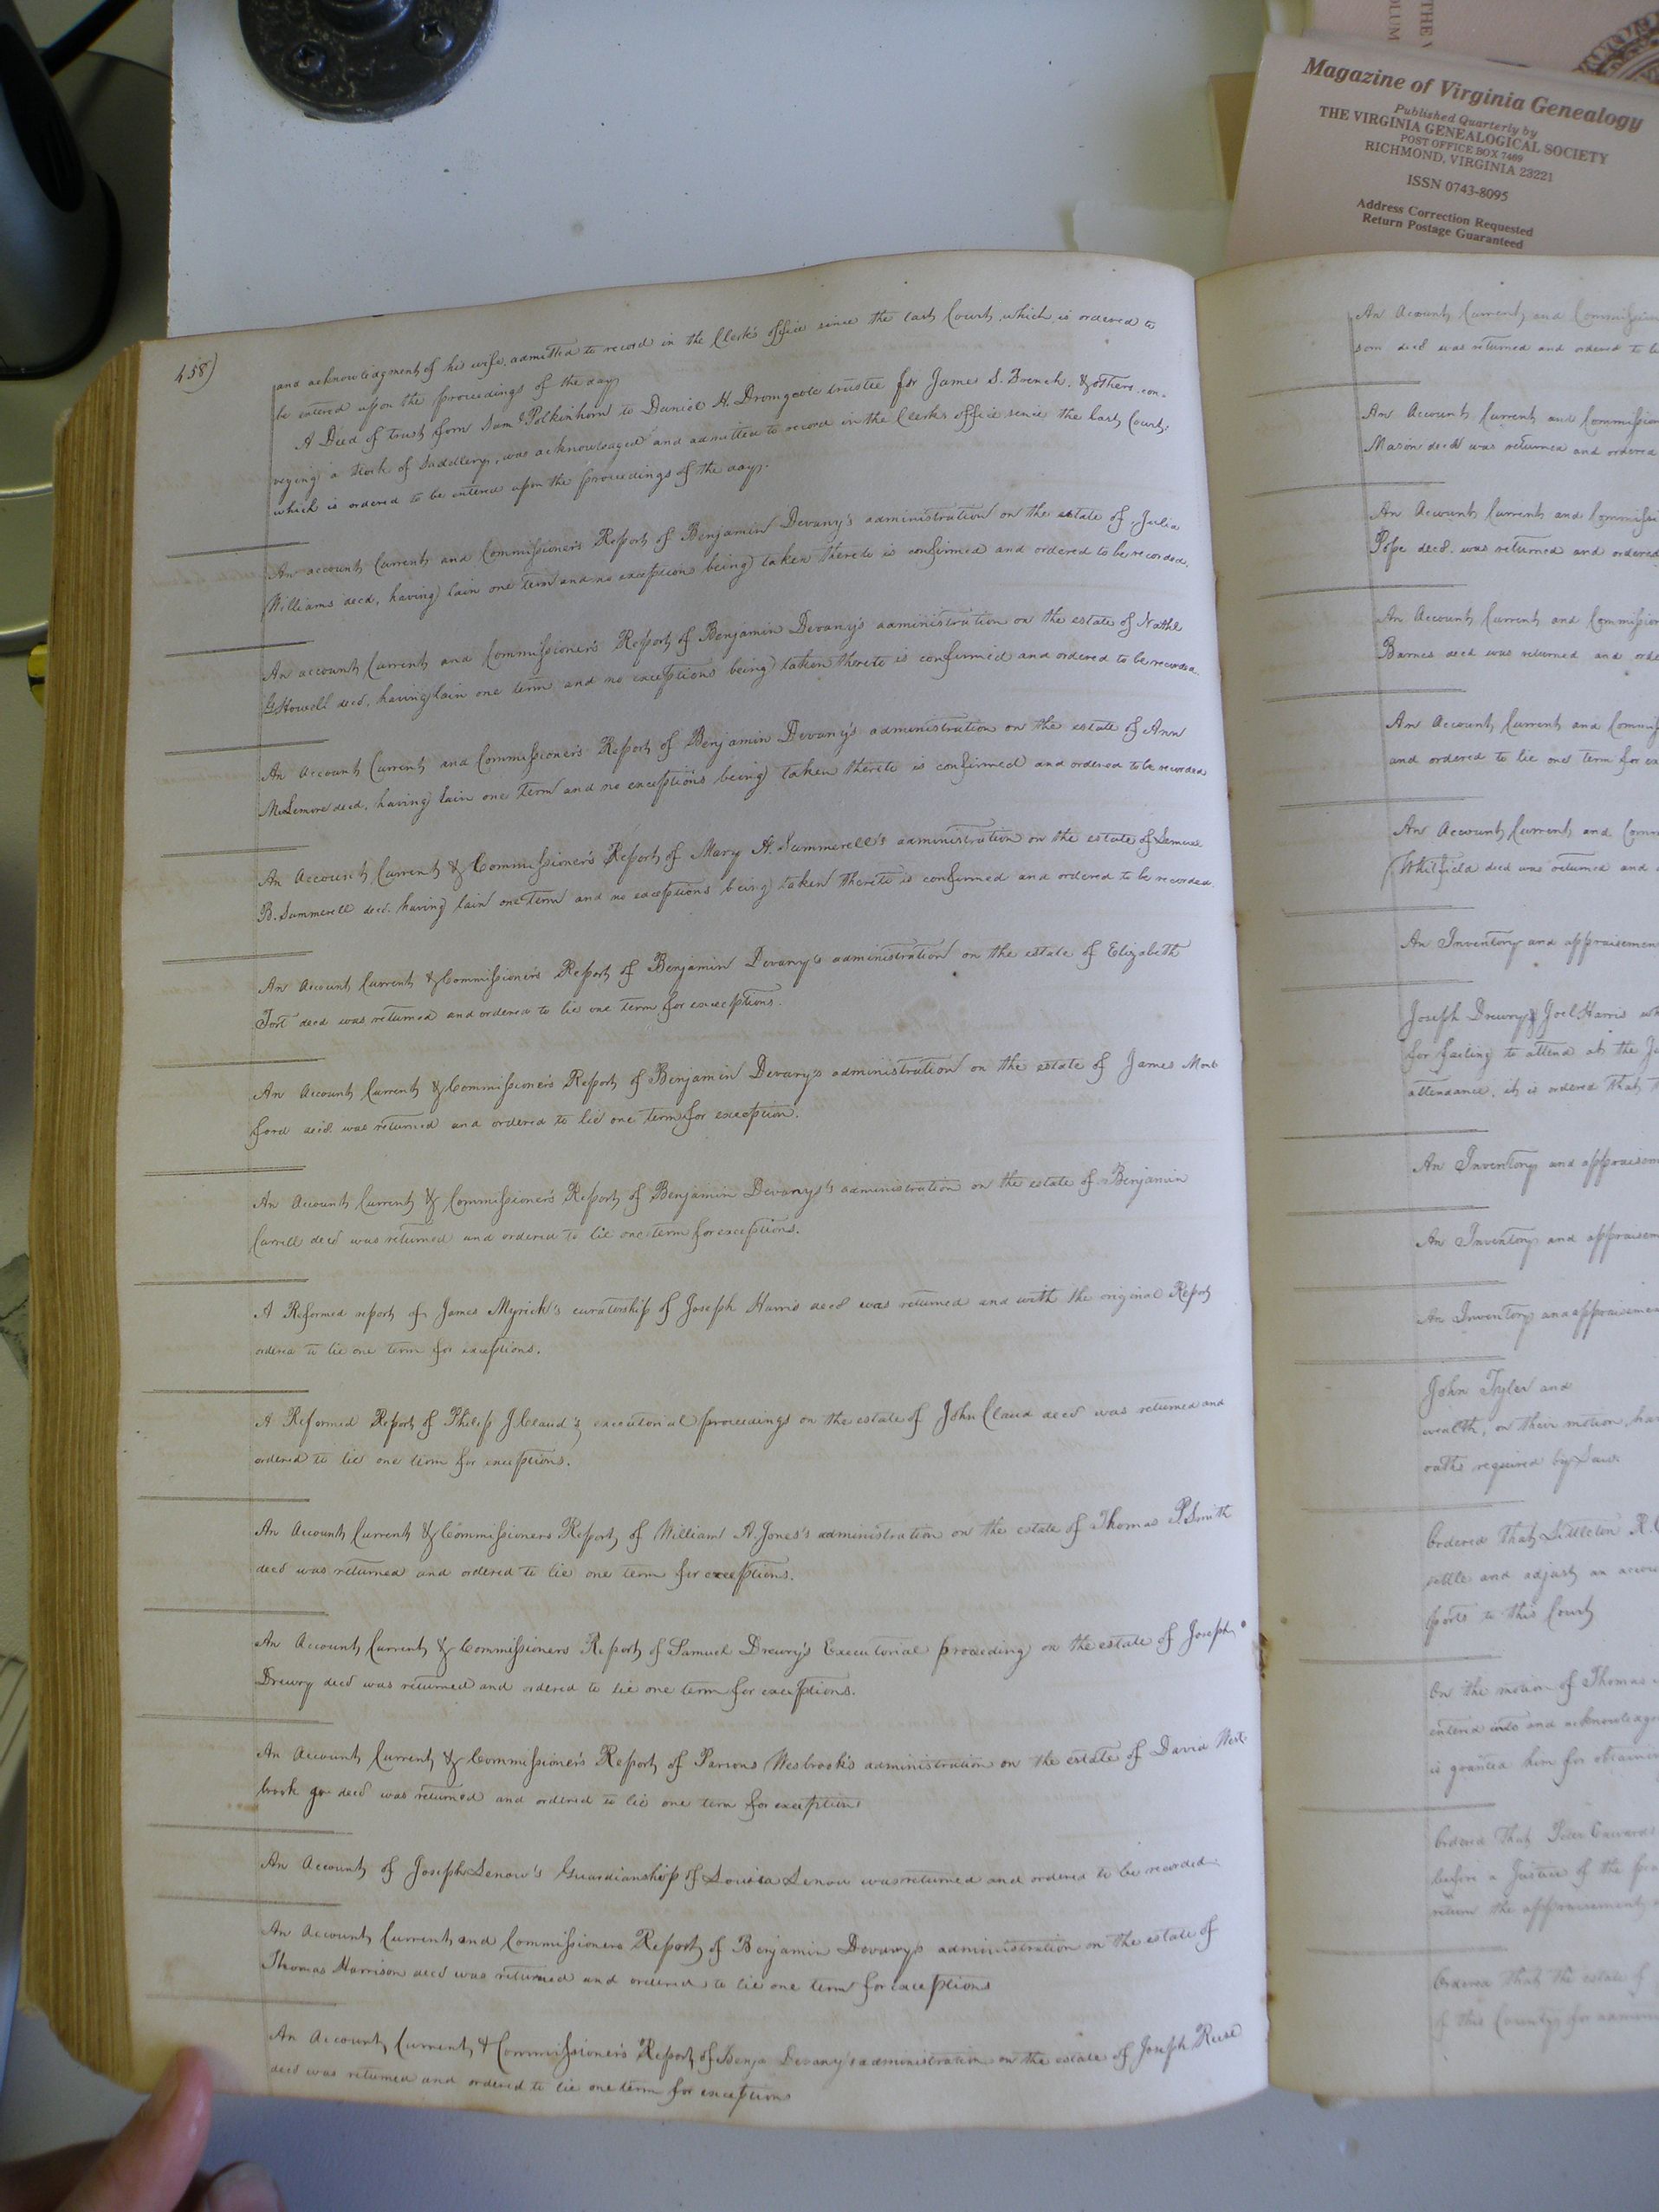 THE V
OLUM
Magazine of Virginia Genealogy
Published Quarterly by
THE VIRGINIA GENEALOGICAL SOCIETY
POST OFFICE BOX 7469
RICHMOND, VIRGINIA 23221
ISSN 0743-8095
Address Correction Requested
Return Postage Guaranteed
458)
and acknowledgment of his wife, admitted to record in the Clerk's office since the last Court, which is ordered to
be entered upon the proceedings of the day
A Deed of trust from Saml Polkinhorn to Daniel H. Dromgoole trustee for James S. French, & others con-
veying a stock of Saddlery, was acknowledged and admitted to record in the Clerks office since the last Court,
which is ordered to be entered upon the proceedings of the day.
An account Current and Commissioner's Report of Benjamin Devany's administration on the estate of Julia
Williams decd, having lain one term and no exceptions being taken thereto is confirmed and ordered to be recorded.
An account Current and Commissioner's Report of Benjamin Devany's administration on the estate of Nathl
G Howell decd, having lain one term and no exceptions being taken thereto is confirmed and ordered to be recorded.
An Account Current and Commissioner's Report of Benjamin Devany's administration on the estate of Ann
McLemore decd, having lain one term and no exceptions being taken thereto is confirmed and ordered to be recorded
An Account Current & Commissioner's Report of Mary A. Summerell's administration on the estate of Lemuel
B. Summerell decd. having lain one term and no exceptions being taken thereto is confirmed and ordered to be recorded.
An Account Current & Commissioner's Report of Benjamin Devany's administration on the estate of Elizabeth
Fort decd was returned and ordered to lie one term for exceptions.
An Account Current & Commissioner's Report of Benjamin Devany's administration on the estate of James Mont
ford decd. was returned and ordered to lie one term for exception.
An Account Current & Commissioner's Report of Benjamin Devany's administration on the estate of Benjamin
Carrell decd was returned and ordered to lie one term for exceptions.
A Reformed report of James Myrick's curatorship of Joseph Harris decd was returned and with the original Report
ordered to lie one term for exceptions.
A Reformed Report of Philip J. Claud's executorial proceedings on the estate of John Claud decd was returned and
ordered to lie one term for exceptions.
An Account Current & Commissioners Report of William A. Jones's administration on the estate of Thomas P. Smith
decd was returned and ordered to lie one term for exceptions.
An Account Current & Commissioners Report of Samuel Drewry's Executorial proceeding on the estate of Joseph
Drewry decd was returned and ordered to lie one term for exceptions.
An Account Current & Commissioner's Report of Parsons Wesbrook's administration on the estate of David West
brook decd was returned and ordered to lie one term for exceptions
An Account of Joseph Lenow's Guardianship of Louisa Lenow was returned and ordered to be recorded
An Account Current and Commissioners Report of Benjamin Devany's administration on the estate of
Thomas Harrison decd was returned and ordered to lie one term for exceptions
An Account Current & Commissioner's Report of Benja Devany's administration on the estate of Joseph Reese
decd was returned and ordered to lie one term for exceptions
An Account Current and Commission
som decd was returned and ordered to
An Account Current and Commission
Mason decd was returned and ordered
An Account Current and Commissi
Pope decd. was returned and ordered
An Account Current and Commission
Barnes decd was returned and orde
An Account Current and Commiss
and ordered to lie one term for ex
An Account Current and Comm
Whitfield decd was returned and
An Inventory and appraisement
Joseph Drewry & Joel Harris wh
for failing to attend at the
attendance, it is ordered that
An Inventory and appraisem
An Inventory and appraisem
An Inventory and appraisemen
John Tyler and
wealth, on their motion, hav
oaths required by Law.
Ordered that Littleton R.
settle and adjust an accou
ports to this Court
On the motion of Thomas
entered into and acknowledge
is granted him for obtaini
Ordered that Peter Edwards
before a Justice of the Pea
return the appraisement
Ordered that the estate of
of this County for adminis